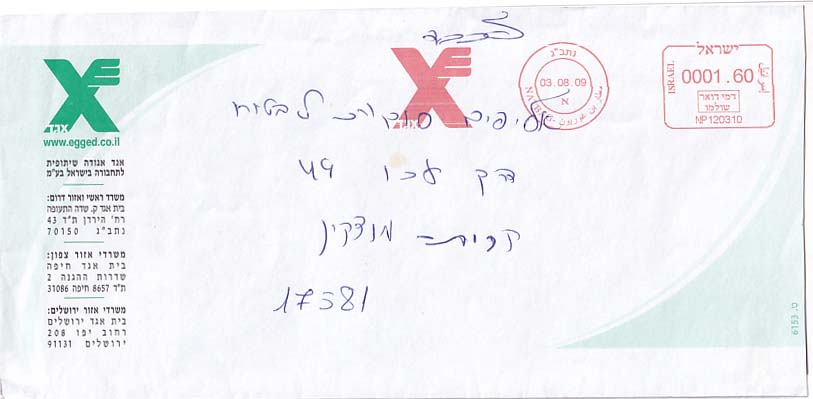 לכבוד
אסיפים סוכנות לביטוח
דרך עכו 49
קרית מוצקין
17381
אגד
www.egged.co.il
אגד אגודה שיתופית
לתחבורה בישראל בע"מ
משרד ראשי ואזור דרום:
בית אגד ק. שדה התעופה
רח' הירדן ת"ד 43
נתב"ג 70150
משרדי אזור צפון:
בית אגד חיפה
שדרות ההגנה 2
ת"ד 8657 חיפה 31086
משרדי אזור ירושלים:
בית אגד ירושלים
רחוב יפו 208
ירושלים 91131
אגד
נתב"ג
03.08.09
א
ישראל
ISRAEL
0001.60
דמי דואר
שולמו
NP120310
ט. 6153